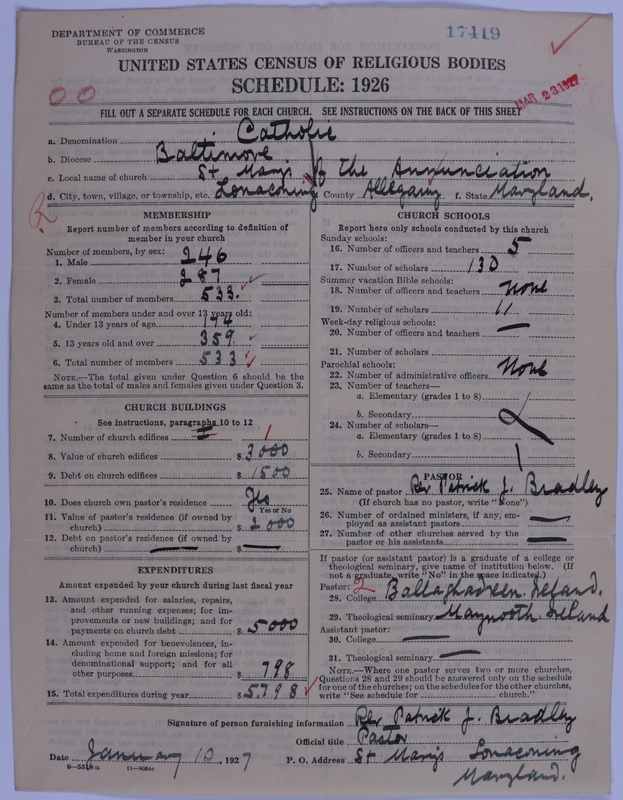 DEPARTMENT OF COMMERCE
BUREAU OF THE CENSUS
WASHINGTON
17419
UNITED STATES CENSUS OF RELIGIOUS BODIES
SCHEDULE: 1926
MAR 23 1927
FILL OUT A SEPARATE SCHEDULE FOR EACH CHURCH. SEE INSTRUCTIONS ON THE BACK OF THIS SHEET
a. Denomination Catholic
b. Diocese Baltimore
c. Local name of church St Marys of the Annunciation
d. City, town, village, or township, etc. Lonaconing County Allegany f. State Maryland.
MEMBERSHIP
Report number of members according to definition of
member in your church
Number of members, by sex:
1. Male 246
2. Female 287
3. Total number of members 533.
Number of members under and over 13 years old:
4. Under 13 years of age 174
5. 13 years old and over 359
6. Total number of members 533
NOTE.—The total given under Question 6 should be the
same as the total of males and females given under Question 3.
CHURCH BUILDINGS
See instructions, paragraphs 10 to 12
7. Number of church edifices 1
8. Value of church edifices $ 3000
9. Debt on church edifices $ 1500
10. Does church own pastor's residence Yes
Yes or No
11. Value of pastor's residence (if owned by
church) $ 2000
12. Debt on pastor's residence (if owned by
church) $ —
EXPENDITURES
Amount expended by your church during last fiscal year
13. Amount expended for salaries, repairs,
and other running expenses; for im-
provements or new buildings; and for
payments on church debt $ 5000
14. Amount expended for benevolences, in-
cluding home and foreign missions; for
denominational support; and for all
other purposes $ 798
15. Total expenditures during year $ 5798
CHURCH SCHOOLS
Report here only schools conducted by this church
Sunday schools:
16. Number of officers and teachers 5
17. Number of scholars 130
Summer vacation Bible schools:
18. Number of officers and teachers None
19. Number of scholars "
Week-day religious schools:
20. Number of officers and teachers —
21. Number of scholars
Parochial schools:
22. Number of administrative officers None
23. Number of teachers—
a. Elementary (grades 1 to 8)
b. Secondary
24. Number of scholars—
a. Elementary (grades 1 to 8)
b. Secondary
PASTOR
25. Name of pastor Rev Patrick J. Bradley
(If church has no pastor, write "None")
26. Number of ordained ministers, if any, em-
ployed as assistant pastors —
27. Number of other churches served by the
pastor or his assistants —
If pastor (or assistant pastor) is a graduate of a college or
theological seminary, give name of institution below. (If
not a graduate, write "No" in the space indicated.)
Pastor: 2
28. College Ballaghadreen Ireland.
29. Theological seminary Maynooth Ireland
Assistant pastor:
30. College —
31. Theological seminary —
NOTE.—Where one pastor serves two or more churches,
Questions 28 and 29 should be answered only on the schedule
for one of the churches; on the schedules for the other churches,
write "See schedule for church."
Signature of person furnishing information Rev Patrick J. Bradley
Official title Pastor
Date January 10, 1927 P. O. Address St Marys Lonaconing
Maryland.